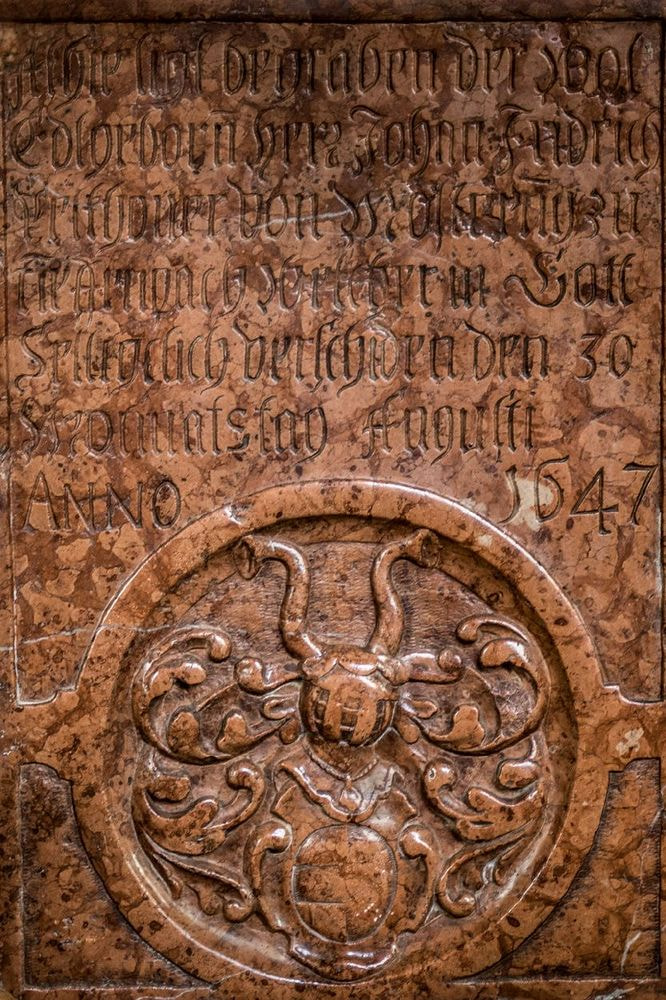 Alhie ligt begraben der Wol
Edlgeborñ Herz Johan Fridrich
von zu
Welcher in Gott
Seeligclich verschiden den 30
Monatstag Augusti
ANNO 1647